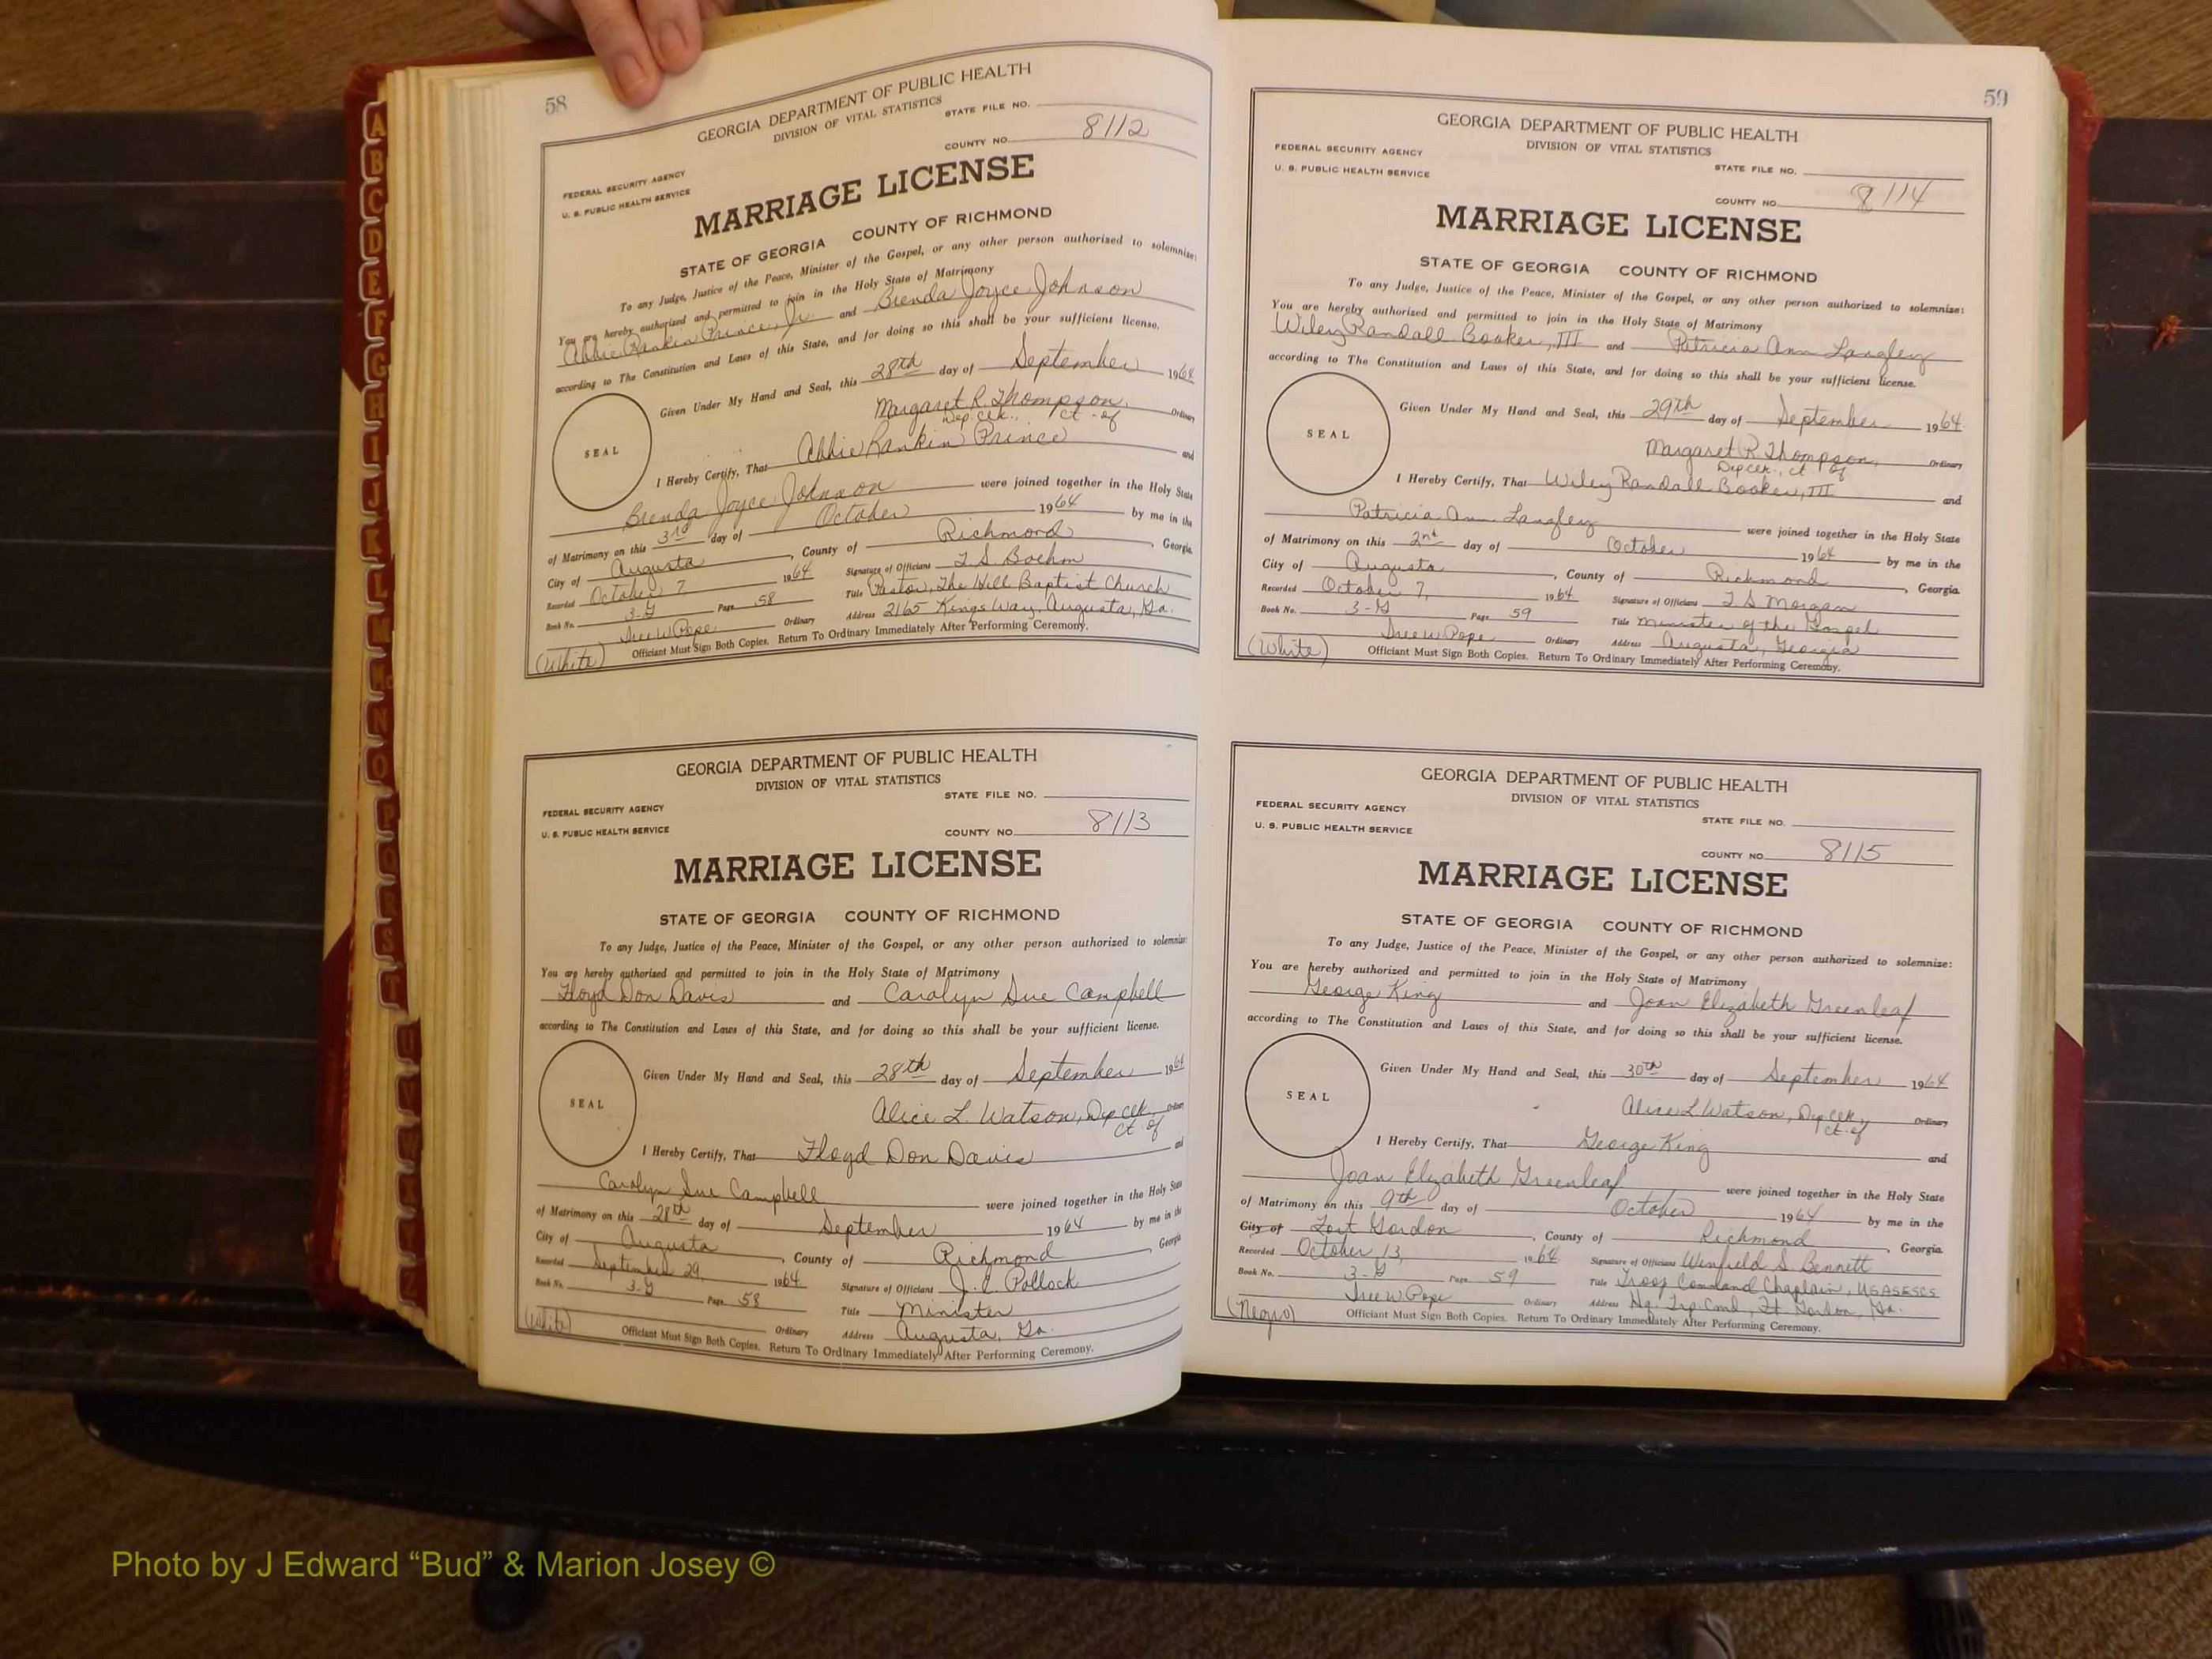 58
GEORGIA DEPARTMENT OF PUBLIC HEALTH
DIVISION OF VITAL STATISTICS
STATE FILE NO.
FEDERAL SECURITY AGENCY
U. S. PUBLIC HEALTH SERVICE
COUNTY NO. 8112
MARRIAGE LICENSE
STATE OF GEORGIA COUNTY OF RICHMOND
To any Judge, Justice of the Peace, Minister of the Gospel, or any other person authorized to solemnize:
You are hereby authorized and permitted to join in the Holy State of Matrimony
Abbie Rankin Prince, Jr. and Brenda Joyce Johnson
according to The Constitution and Laws of this State, and for doing so this shall be your sufficient license.
Given Under My Hand and Seal, this 28th day of September 1964
SEAL
Margaret R. Thompson, Ordinary
Dep Clk., Ct. of
I Hereby Certify, That Abbie Rankin Prince and
Brenda Joyce Johnson were joined together in the Holy State
of Matrimony on this 3rd day of October 1964 by me in the
City of Augusta, County of Richmond, Georgia.
Recorded October 7 1964 Signature of Officiant T. S. Boehm
Book No. 3-G Page 58 Title Pastor, The Hill Baptist Church
Ordinary Address 2165 Kings Way, Augusta, Ga.
(White) Officiant Must Sign Both Copies. Return To Ordinary Immediately After Performing Ceremony.
GEORGIA DEPARTMENT OF PUBLIC HEALTH
DIVISION OF VITAL STATISTICS
STATE FILE NO.
FEDERAL SECURITY AGENCY
U. S. PUBLIC HEALTH SERVICE
COUNTY NO. 8113
MARRIAGE LICENSE
STATE OF GEORGIA COUNTY OF RICHMOND
To any Judge, Justice of the Peace, Minister of the Gospel, or any other person authorized to solemnize:
You are hereby authorized and permitted to join in the Holy State of Matrimony
Floyd Don Davis and Carolyn Sue Campbell
according to The Constitution and Laws of this State, and for doing so this shall be your sufficient license.
Given Under My Hand and Seal, this 28th day of September 1964
SEAL
Alice L. Watson, Dep Clk, Ordinary
Ct of
I Hereby Certify, That Floyd Don Davis and
Carolyn Sue Campbell were joined together in the Holy State
of Matrimony on this 28th day of September 1964 by me in the
City of Augusta, County of Richmond, Georgia
Recorded September 29, 1964 Signature of Officiant J. C. Pollock
Book No. 3-G Page 58 Title Minister
Ordinary Address Augusta, Ga.
(White) Officiant Must Sign Both Copies. Return To Ordinary Immediately After Performing Ceremony.
59
GEORGIA DEPARTMENT OF PUBLIC HEALTH
DIVISION OF VITAL STATISTICS
FEDERAL SECURITY AGENCY
U. S. PUBLIC HEALTH SERVICE
STATE FILE NO.
COUNTY NO. 8114
MARRIAGE LICENSE
STATE OF GEORGIA COUNTY OF RICHMOND
To any Judge, Justice of the Peace, Minister of the Gospel, or any other person authorized to solemnize:
You are hereby authorized and permitted to join in the Holy State of Matrimony
Wiley Randall Booker, III and Patricia Ann Langley
according to The Constitution and Laws of this State, and for doing so this shall be your sufficient license.
Given Under My Hand and Seal, this 29th day of September 1964.
SEAL
Margaret R Thompson, Ordinary
Dep Clk., Ct of
I Hereby Certify, That Wiley Randall Booker, III and
Patricia Ann Langley were joined together in the Holy State
of Matrimony on this 2nd day of October 1964 by me in the
City of Augusta, County of Richmond, Georgia.
Recorded October 7, 1964 Signature of Officiant T S Morgan
Book No. 3-G Page 59 Title Minister of the Gospel
Ordinary Address Augusta, Georgia
(White) Officiant Must Sign Both Copies. Return To Ordinary Immediately After Performing Ceremony.
GEORGIA DEPARTMENT OF PUBLIC HEALTH
DIVISION OF VITAL STATISTICS
FEDERAL SECURITY AGENCY
U. S. PUBLIC HEALTH SERVICE
STATE FILE NO.
COUNTY NO. 8115
MARRIAGE LICENSE
STATE OF GEORGIA COUNTY OF RICHMOND
To any Judge, Justice of the Peace, Minister of the Gospel, or any other person authorized to solemnize:
You are hereby authorized and permitted to join in the Holy State of Matrimony
George King and Joan Elizabeth Greenleaf
according to The Constitution and Laws of this State, and for doing so this shall be your sufficient license.
Given Under My Hand and Seal, this 30th day of September 1964
SEAL
Alice L Watson, Dep Clk, Ordinary
Ct. of
I Hereby Certify, That George King and
Joan Elizabeth Greenleaf were joined together in the Holy State
of Matrimony on this 9th day of October 1964 by me in the
City of Fort Gordon, County of Richmond, Georgia.
Recorded October 13, 1964. Signature of Officiant Winfield S. Bennett
Book No. 3-G Page 59 Title Troop Command Chaplain, USASESCS
Ordinary Address Hq. Trp. Cmd., Ft. Gordon, Ga.
(Negro) Officiant Must Sign Both Copies. Return To Ordinary Immediately After Performing Ceremony.
A
B
C
D
E
F
G
H
I
J
K
L
N
O
P
Q
R
S
T
Photo by J Edward “Bud” & Marion Josey ©